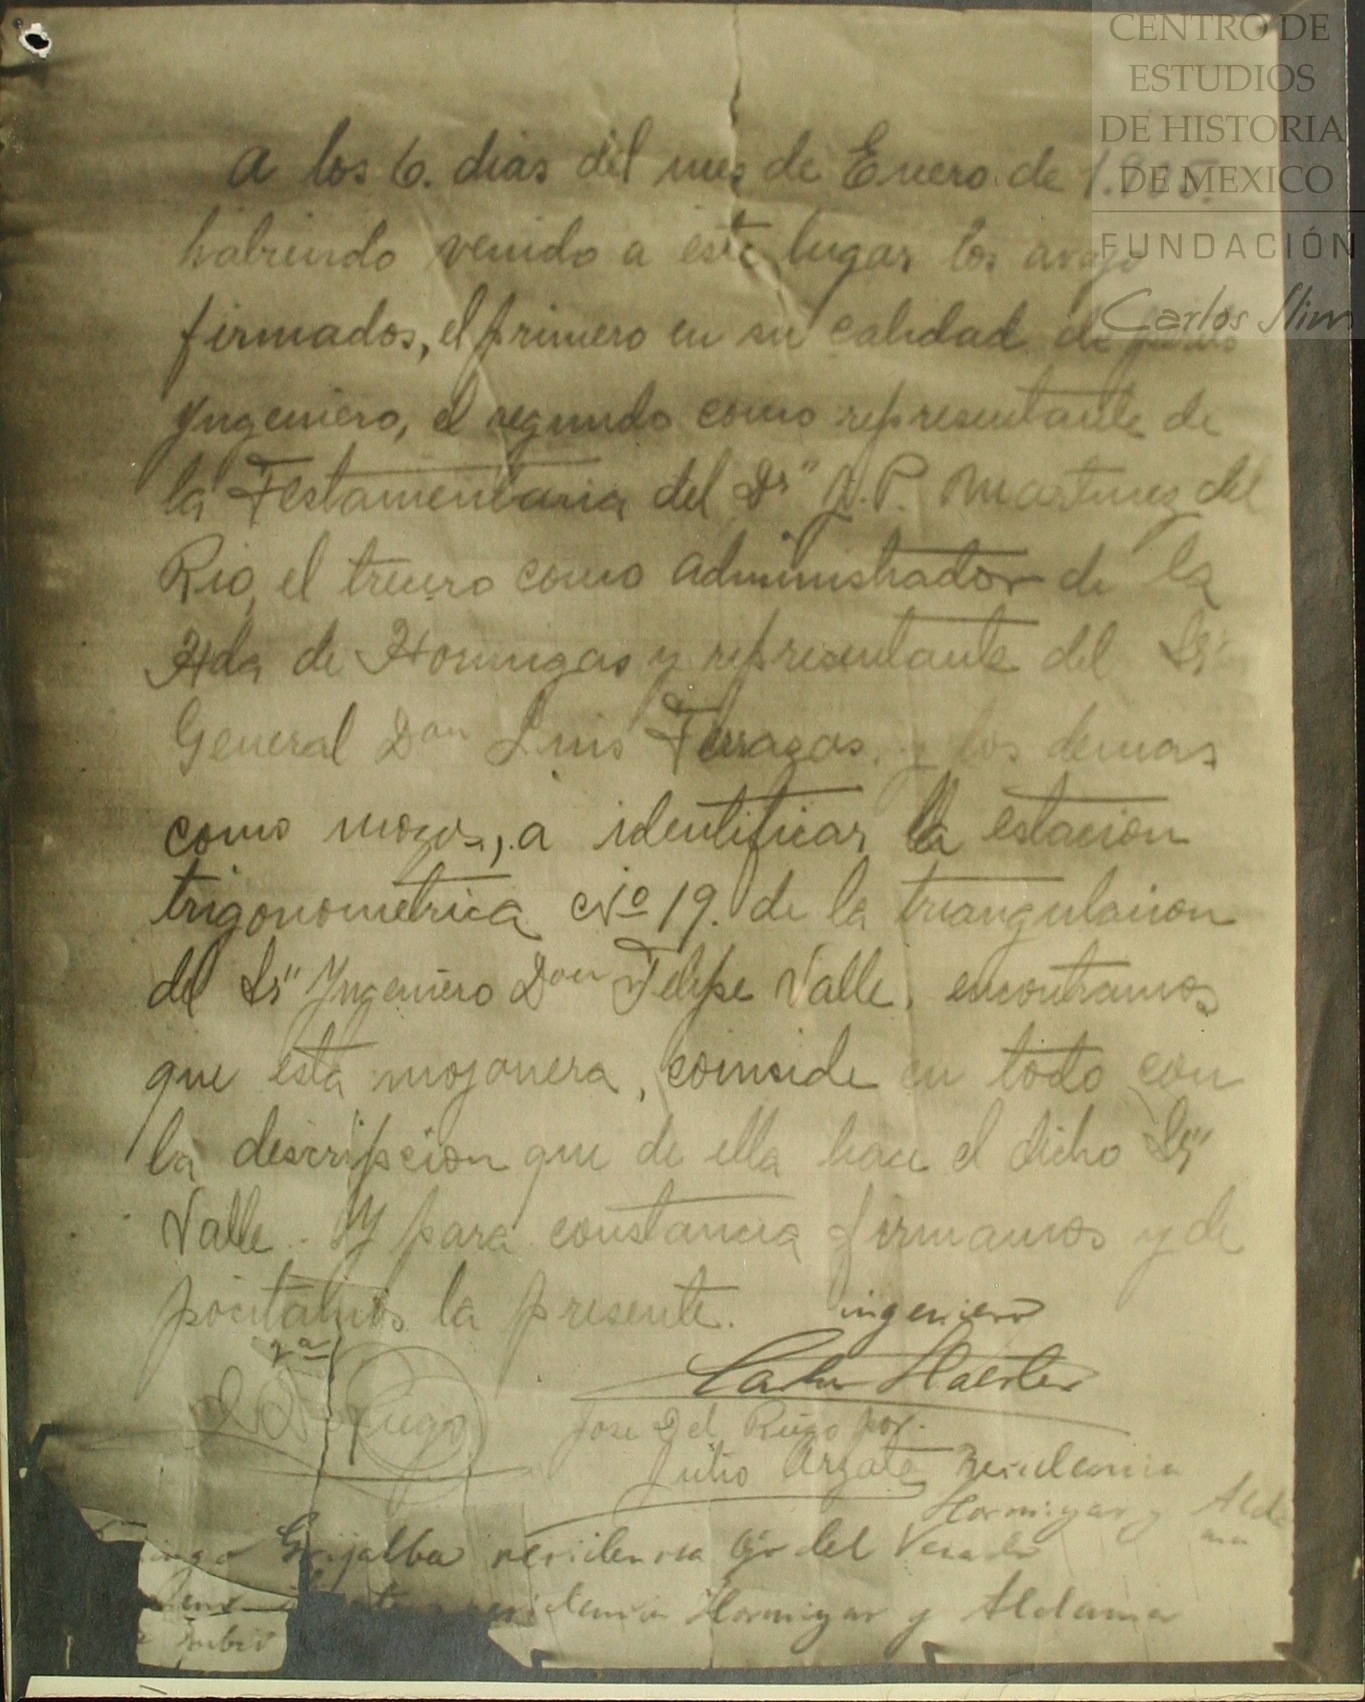 CENTRO DE
ESTUDIOS
DE HISTORIA
DE MEXICO
FUNDACIÓN
Carlos Slim
A los 6. dias del mes de Enero de
habiendo venido a este lugar los abajo
firmados, el primero en su calidad de
Yngeniero, el segundo como representante de
la Testamentaria del Dr P. Martinez del
Rio, el tercero como administrador de la
Hda de Hormigas y representante del Sr
General Don Luis Terrazas, y los demas
como mozos, a identificar la estacion
trigonometrica No 19. de la triangulacion
del Sr Yngeniero Don Felipe Valle, encontramos
que esta mojonera, coincide en todo con
la descripcion que de ella hace el dicho Sr
Valle. Y para constancia firmamos y de
positamos la presente.
ingeniero
Jose Del Riego por.
Julio Arzate Residencia
Hormigas y Alda
ma
Grijalba residencia Ojo del Venado
residencia Hormigas y Aldama
Rubio